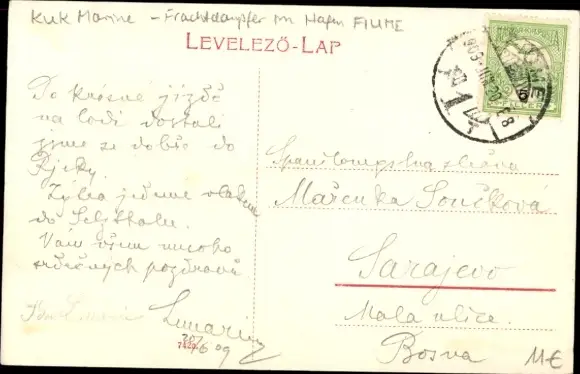 KuK Marine – Frachtdampfer im Hafen FIUME
LEVELEZŐ-LAP
Po krásné jízdě
na lodi dostali
jsme se dobře do
Rjeky.
jedeme vlakem
do
Vám všem mnoho
srdečných pozdravů
FIUME
5
slečna
Mařenka Součková
Sarajevo
Mala ulice.
Bosna
6 09
M€